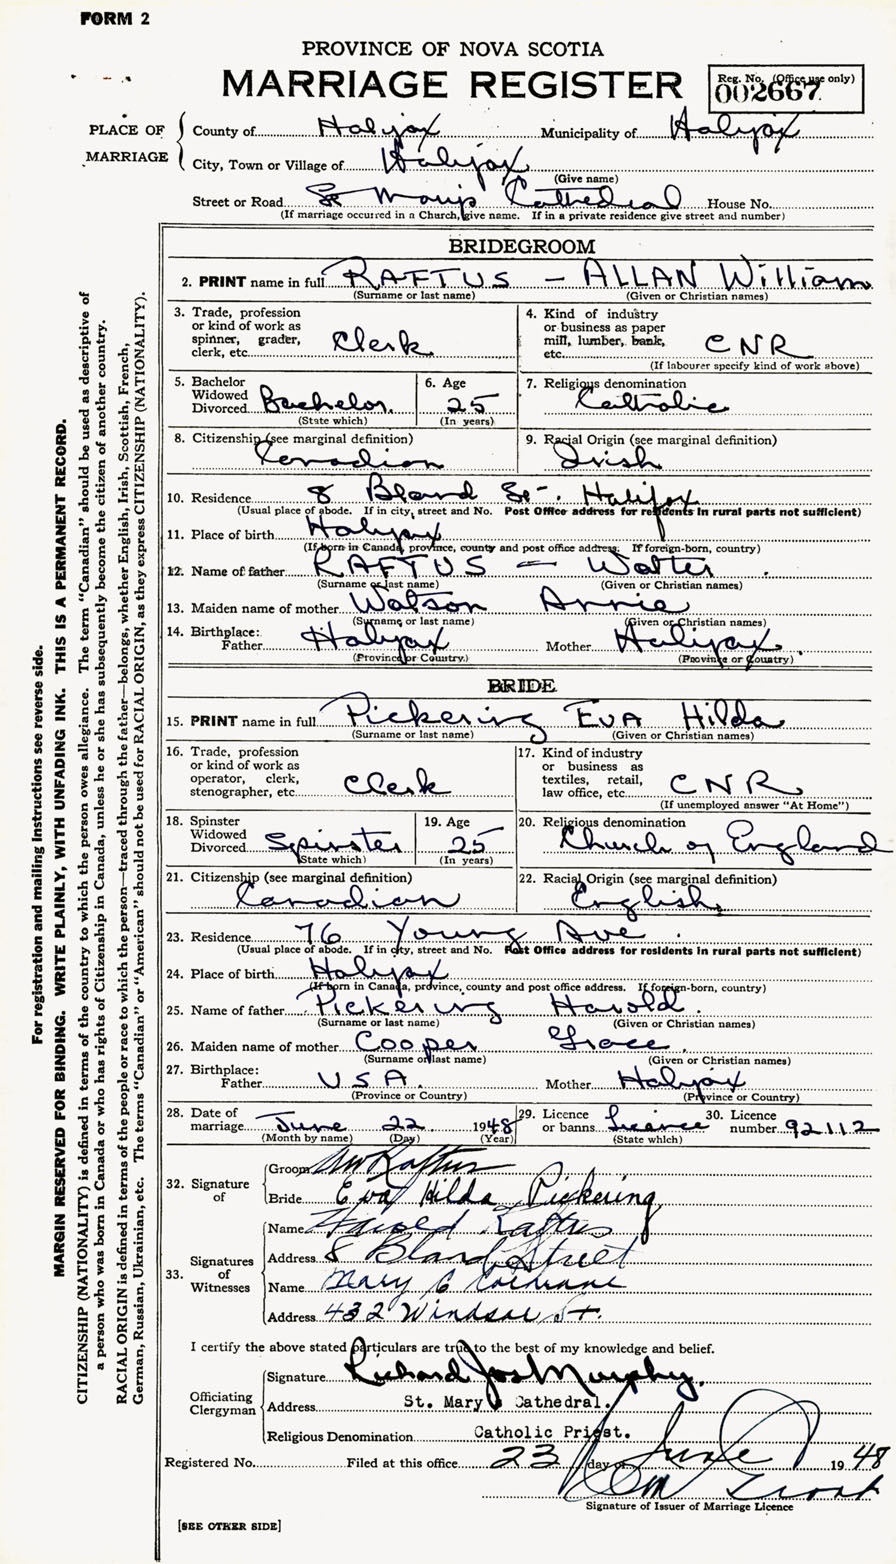 FORM 2
PROVINCE OF NOVA SCOTIA
MARRIAGE REGISTER
Reg. No. (Office use only)
002667
PLACE OF MARRIAGE
County of Halifax Municipality of Halifax
City, Town or Village of Halifax
(Give name)
Street or Road St Mary's Cathedral House No.
(If marriage occurred in a Church, give name. If in a private residence give street and number)
BRIDEGROOM
2. PRINT name in full RAFTUS - ALLAN William
(Surname or last name) (Given or Christian names)
3. Trade, profession or kind of work as spinner, grader, clerk, etc. Clerk
4. Kind of industry or business as paper mill, lumber, bank, etc. CNR
(If labourer specify kind of work above)
5. Bachelor Widowed Divorced Bachelor
(State which)
6. Age 25
(In years)
7. Religious denomination Catholic
8. Citizenship (see marginal definition) Canadian
9. Racial Origin (see marginal definition) Irish
10. Residence 8 Bland St. Halifax
(Usual place of abode. If in city, street and No. Post Office address for residents in rural parts not sufficient)
11. Place of birth Halifax
(If born in Canada, province, county and post office address. If foreign-born, country)
12. Name of father RAFTUS - Walter
(Surname or last name) (Given or Christian names)
13. Maiden name of mother Watson Annie
(Surname or last name) (Given or Christian names)
14. Birthplace: Father Halifax Mother Halifax
(Province or Country) (Province or Country)
BRIDE
15. PRINT name in full Pickering EVA Hilda
(Surname or last name) (Given or Christian names)
16. Trade, profession or kind of work as operator, clerk, stenographer, etc. Clerk
17. Kind of industry or business as textiles, retail, law office, etc. CNR
(If unemployed answer "At Home")
18. Spinster Widowed Divorced Spinster
(State which)
19. Age 25
(In years)
20. Religious denomination Church of England
21. Citizenship (see marginal definition) Canadian
22. Racial Origin (see marginal definition) English
23. Residence 76 Young Ave.
(Usual place of abode. If in city, street and No. Post Office address for residents in rural parts not sufficient)
24. Place of birth Halifax
(If born in Canada, province, county and post office address. If foreign-born, country)
25. Name of father Pickering Harold
(Surname or last name) (Given or Christian names)
26. Maiden name of mother Cooper Grace
(Surname or last name) (Given or Christian names)
27. Birthplace: Father USA. Mother Halifax
(Province or Country) (Province or Country)
28. Date of marriage June 22 1948
(Month by name) (Day) (Year)
29. Licence or banns Licence
(State which)
30. Licence number 92112
32. Signature of
Groom AW Raftus
Bride Eva Hilda Pickering
33. Signatures of Witnesses
Name Harold Raftus
Address 8 Bland Street
Name Mary C Cochrane
Address 432 Windsor St.
I certify the above stated particulars are true to the best of my knowledge and belief.
Officiating Clergyman
Signature Richard Jos Murphy.
Address St. Mary's Cathedral.
Religious Denomination Catholic Priest.
Registered No. Filed at this office 23 day of June 1948
Signature of Issuer of Marriage Licence
[SEE OTHER SIDE]
For registration and mailing instructions see reverse side.
MARGIN RESERVED FOR BINDING. WRITE PLAINLY, WITH UNFADING INK. THIS IS A PERMANENT RECORD.
CITIZENSHIP (NATIONALITY) is defined in terms of the country to which the person owes allegiance. The term "Canadian" should be used as descriptive of
a person who was born in Canada or who has rights of Citizenship in Canada, unless he or she has subsequently become the citizen of another country.
RACIAL ORIGIN is defined in terms of the people or race to which the person—traced through the father—belongs, whether English, Irish, Scottish, French,
German, Russian, Ukrainian, etc. The terms "Canadian" or "American" should not be used for RACIAL ORIGIN, as they express CITIZENSHIP (NATIONALITY).